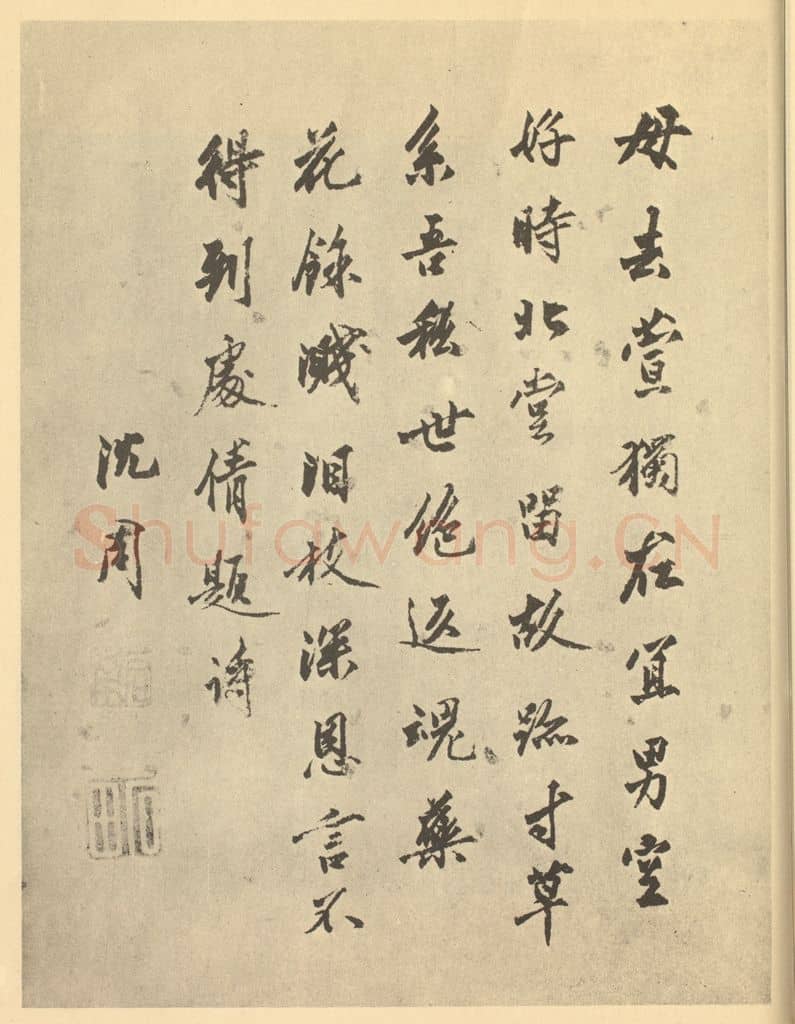 母去萱獨在宜男空
好時北堂留故跡寸草
系吾私世絕返魂藥
花餘濺泪枝深恩言不
得到處倩題詩
沈周
Shufawang.CN